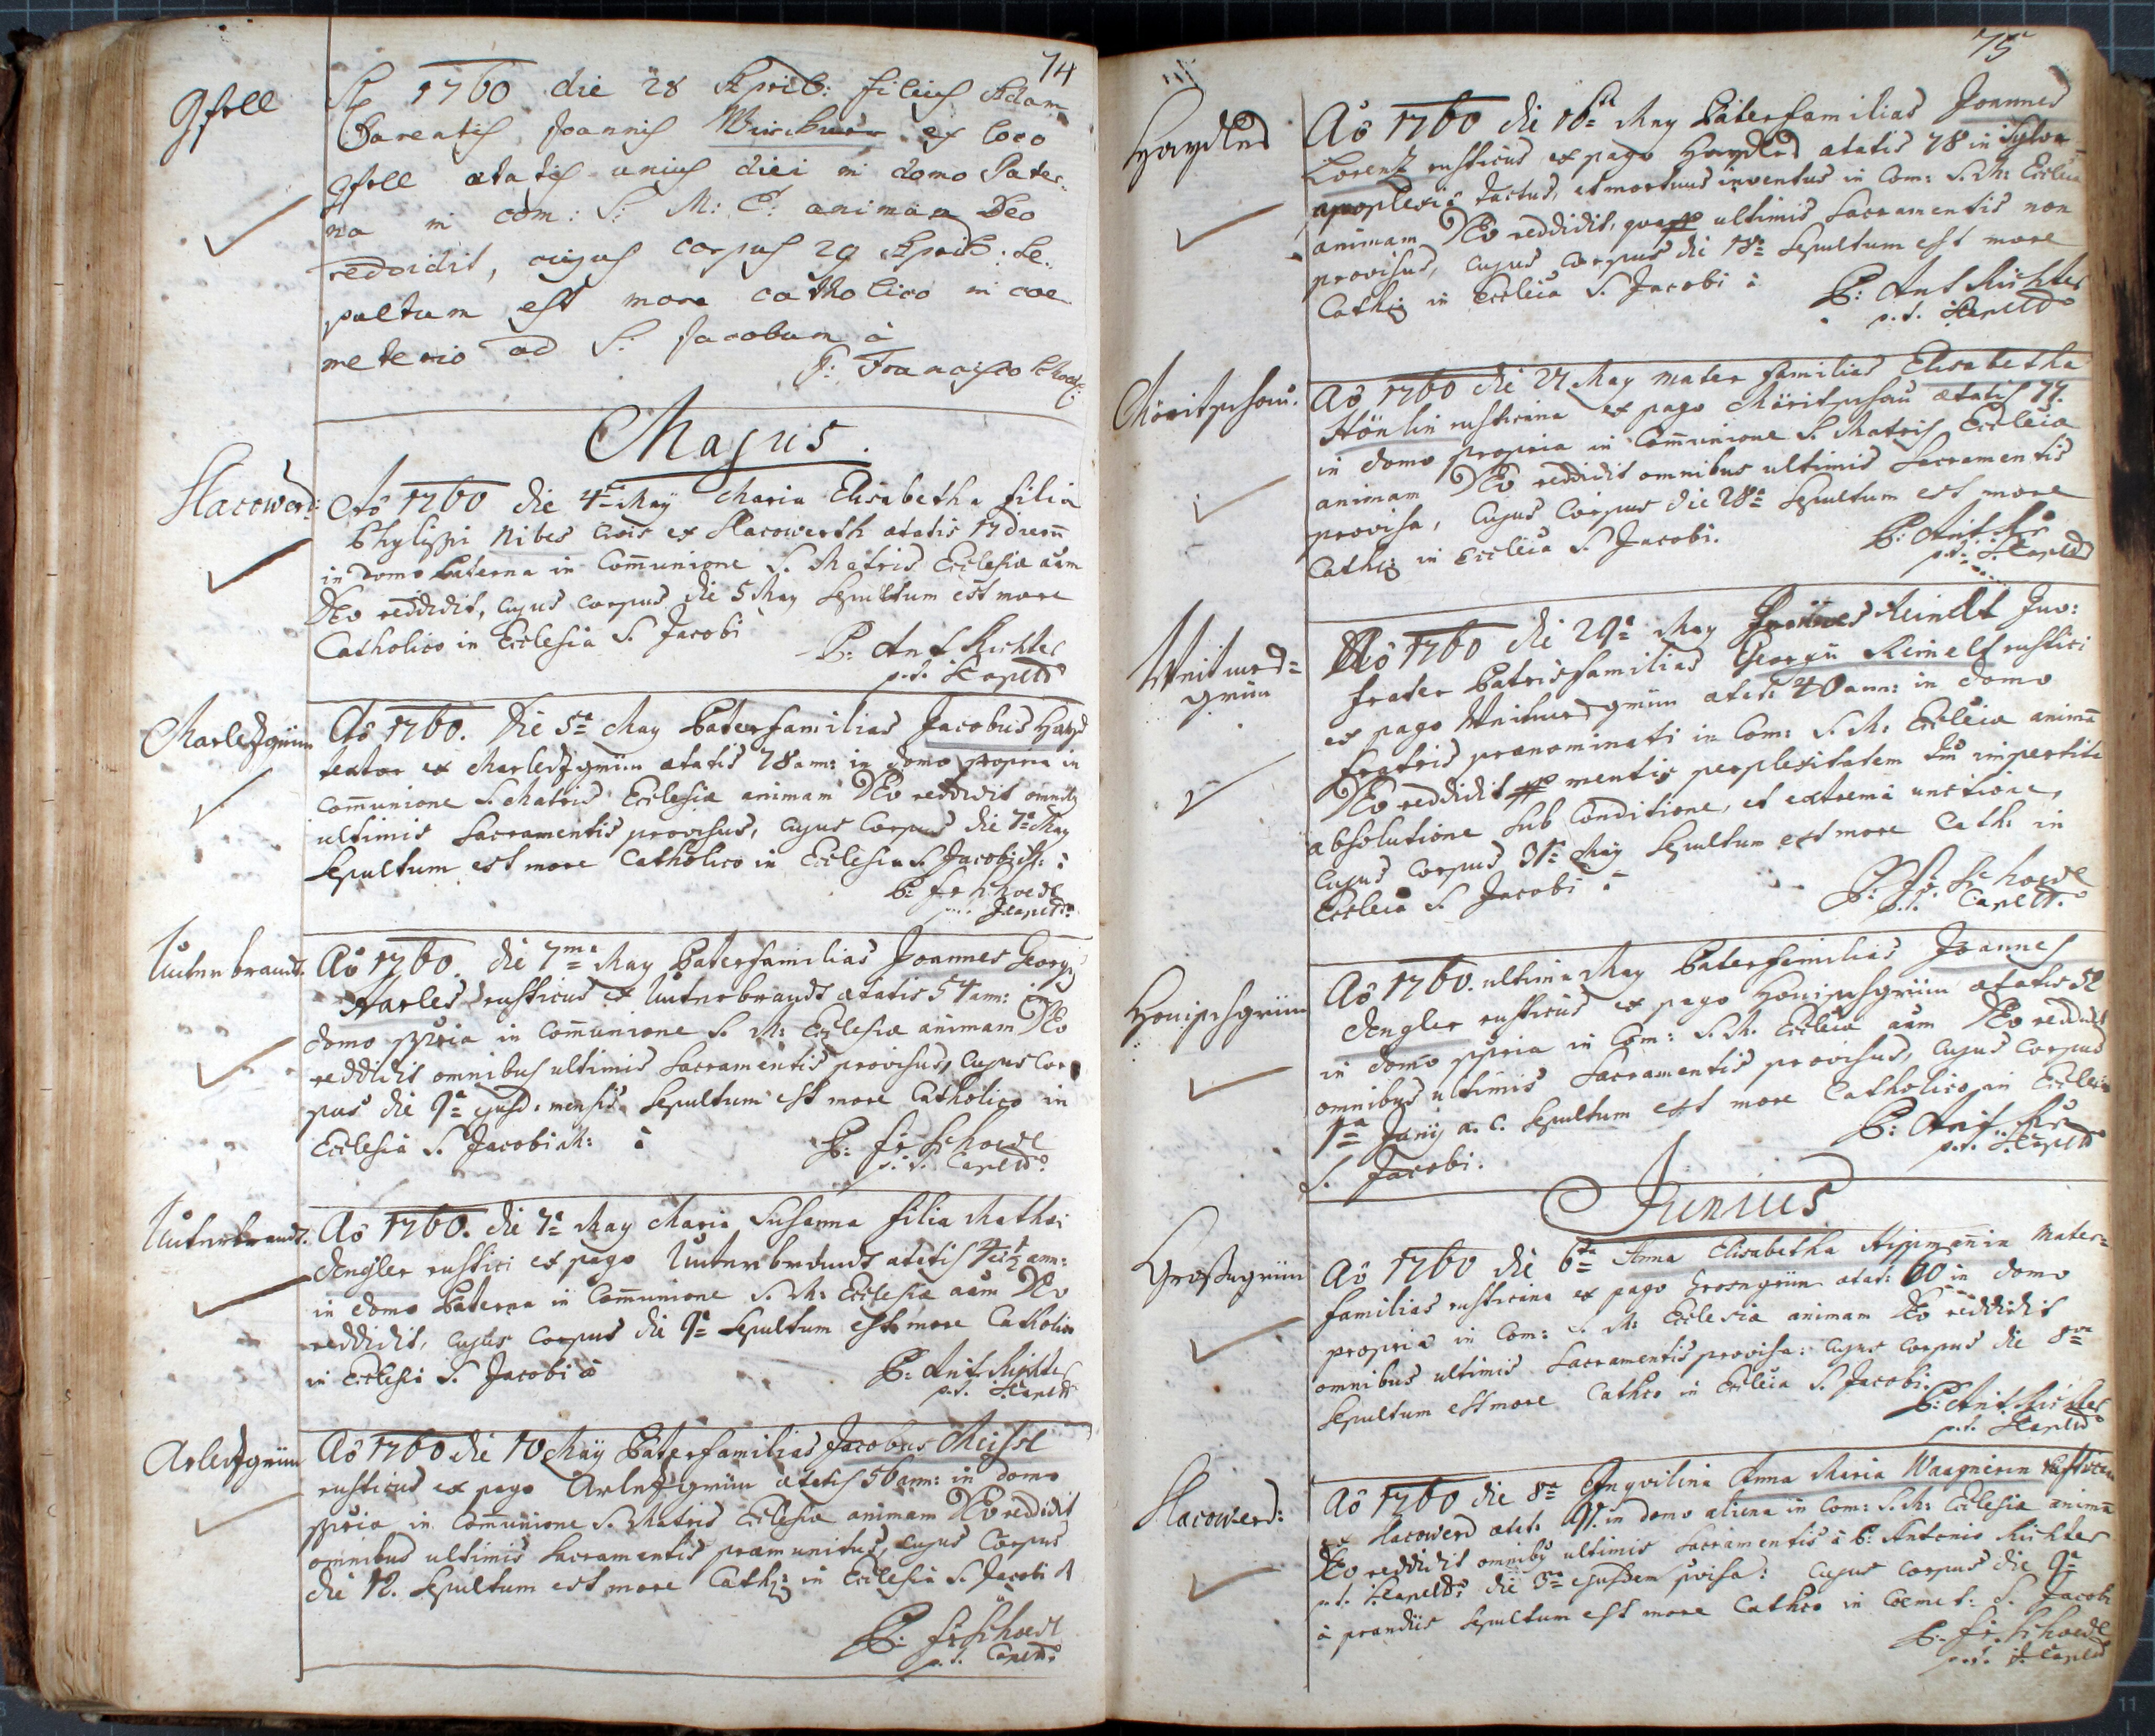 74
Gfell
A 1760 die 28 April: filius Adam
Parentis Joannis ex loco
Gfell ætatis unius diei in domo Pater-
na in com: S: M: E: animam Deo
reddidit, cujus corpus 29 April: Se-
pultum est more catholico in coe
meterio ad S: Jacobum à
P: Francisco Schoedl
Majus.
Slacowerd:
Aô 1760 die 4ta May Maria Elisabetha filia
Phylippi Nibes civis ex Slacowerth ætatis 17 dierum
in domo Paterna in Communione S. Matris Ecclesiæ aam
Deo reddidit, cujus corpus die 5 May Sepultum est more
Catholico in Ecclesia S. Jacobi
P: Ant Richter
p.t. Capell
Marletzgrün
Aô 1760. Die 5ta May Paterfamilias Jacobus
textor ex Marletzgrün ætatis 78 ann: in domo propria in
Communione S. Matris Ecclesiæ animam Deo reddidit omnibg
ultimis Sacramentis provisus, cujus Corpus die 7a May
Sepultum est more Catholico in Ecclesia S. Jacobi M: à
P: fr Schoedl
p.t. Capell
Unterbrandt.
Aô 1760. die 7ma May Paterfamilias Joannes Georg
Harles rusticus ex Unterbrandt ætatis 54 ann: in
domo ppria in Communione S. M: Ecclesiæ animam Deo
reddidit omnibus ultimis Sacramentis provisus, cujus Cor
pus die 9a ejusd: mensis Sepultum est more Catholico in
Ecclesia S. Jacobi M: à
P: fr Schoedl
p.t. Capell
Unterbrandt.
Aô 1760. die 7a May Maria Susanna filia Mathæi
Engler rustici ex pago Unterbrandt ætatis 4 et ½ ann:
in domo Paterna in Communione S. M: Ecclesiæ aam Deo
reddidit, cujus Corpus die 9a Sepultum est more Catholico
in Ecclesia S. Jacobi à
P: Ant: Richter
p.t. Capell
Arletzgrün
Aô 1760 die 10 May Paterfamilias Jacobus Meissl
rusticus ex pago Arletzgrün ætatis 56 ann: in domo
ppria in Communione S. Matris Ecclesiæ animam Deo reddidit
omnibus ultimis Sacramentis præmunitus, cujus Corpus
die 12. Sepultum est more Cath: in Ecclesia S. Jacobi M
à
P: fr Schoedl
p.t. Capell
75
Haydles
Aô 1760 die 16ta May Paterfamilias Joannes
Lorentz rusticus ex pago Haydles ætatis 78 in
apoplexia tactus, et mortuus inventus in Com: S. M: Ecclesiæ
animam Deo reddidit, ultimis Sacramentis non
provisus, cujus Corpus die 18a Sepultum est more
Cath: in Ecclesia S. Jacobi à
P: Ant Richter
p.t. Capell
Möritschau.
Aô 1760 die 27 May mater familias Elisabetha
Hönlin rusticana ex pago Möritschau ætatis 77.
in domo propria in Communione S. Matris Ecclesiæ
animam Deo reddidit omnibus ultimis Sacramentis
provisa, cujus Corpus die 28a Sepultum est more
Cath: in Ecclesia S. Jacobi.
P: Ant. Ri
p.t. Capell
Weitmes=
grün
Aô 1760 die 29a May Joannes Reindl Juv:
frater Patrisfamilias Georgii Reinelt rustici
ex pago Weitmesgrün ætat: 40 ann: in domo
fratris prænominati in Com: S. M: Ecclesiæ animã
Deo reddidit mentis perplexitatem impertita
absolutione Sub Conditione, et extrema unctione,
cujus Corpus 31a May Sepultum est more Cath: in
Ecclesia S. Jacobi à
P: Fr. Schoedl
p.t. Capell
Honischgrün
Aô 1760. ultima May Paterfamilias Joannes
Engler rusticus ex pago Honischgrün ætatis 52
in domo ppria in Com: S. M. Ecclesiæ aam Deo reddidit
omnibus ultimis Sacramentis provisus, cujus Corpus
1ma Junij a. c. Sepultum est more Catholico in Ecclesia
S. Jacobi.
P: Ant. Ri
p.t. Capell
Junius
Grossengrün
Aô 1760 die 6ta Anna Elisabetha Hipmanin mater=
familias rusticana ex pago Grosengrün ætat: 60 in domo
propria in Com: S. M: Ecclesiæ animam Deo reddidit
omnibus ultimis Sacramentis provisa: cujus corpus die 8va
Sepultum est more Cathco in Ecclesia S. Jacobi.
P: Ant. Richter
p.t. Capell
Slacowerd:
Aô 1760 die 8a Inqvilina Anna Maria Waagnerin
ex Slacowerd ætat: 91. in domo aliena in Com: S. M: Ecclesiæ animã
Deo reddidit omnibg ultimis Sacramentis à P: Antonio Richter
p.t. Capell: die 3a ejusdem pvisa: cujus corpus die 9a
à prandiis Sepultum est more Cathco in Coemet: S. Jacobi
P: fr. Schoedl
p.t. Capell